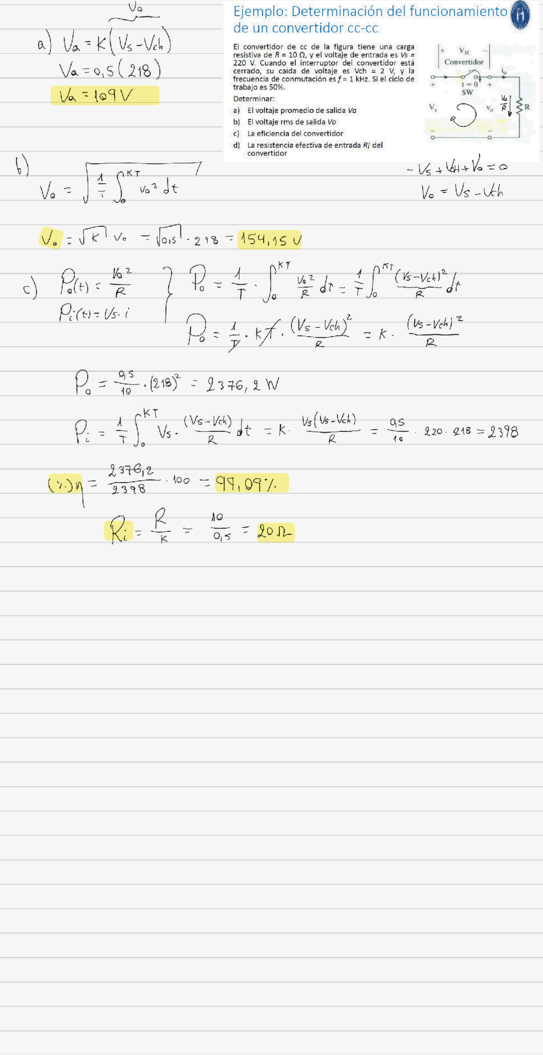 Ejemplo: Determinación del funcionamiento
de un convertidor cc-cc
El convertidor de cc de la figura tiene una carga
resistiva de R = 10 Ω, y el voltaje de entrada es Vs =
220 V. Cuando el interruptor del convertidor está
cerrado, su caída de voltaje es Vch = 2 V, y la
frecuencia de conmutación es f = 1 kHz. Si el ciclo de
trabajo es 50%.
Determinar:
a) El voltaje promedio de salida Va
b) El voltaje rms de salida Vo
c) La eficiencia del convertidor
d) La resistencia efectiva de entrada Ri del
convertidor
+ V_H −
Convertidor
t = 0
SW
V_s
v_o
R
Vo
a) Va = K(Vs − Vch)
Va = 0,5(218)
Va = 109 V
−Vs + VcH + Vo = 0
Vo = Vs − Vch
b) Vo = √(1/T ∫₀^KT vo² dt)
Vo = √K Vo = √0,5 · 218 = 154,15 V
c) Po(t) = Vo²/R } Po = 1/T · ∫₀^KT Vo²/R dt = 1/T ∫₀^KT (Vs−Vch)²/R dt
Pi(t) = Vs · i
Po = 1/T · KT · (Vs − Vch)²/R = K · (Vs−Vch)²/R
Po = 0,5/10 · (218)² = 2376,2 W
Pi = 1/T ∫₀^KT Vs · (Vs−Vch)/R dt = K · Vs(Vs−Vch)/R = 0,5/10 · 220 · 218 = 2398
(%)η = 2376,2/2398 · 100 = 99,09%
Ri = R/K = 10/0,5 = 20 Ω